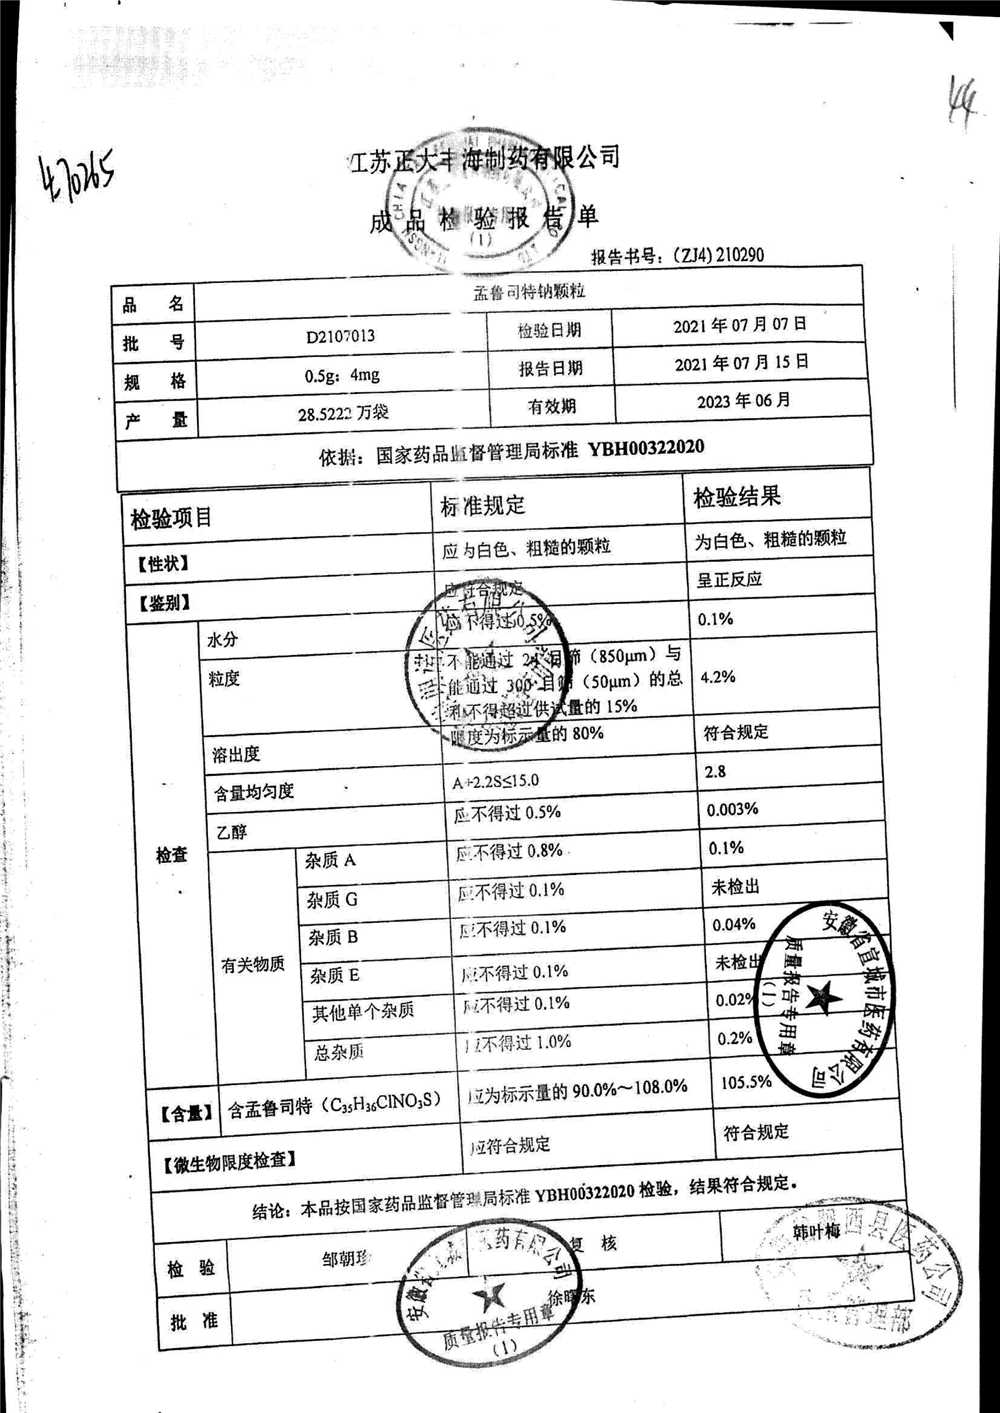 44
470265
江苏正大丰海制药有限公司
成品检验报告单
(1)
报告书号：(ZJ4) 210290
品 名 孟鲁司特钠颗粒
批 号 D2107013 检验日期 2021 年 07 月 07 日
规 格 0.5g：4mg 报告日期 2021 年 07 月 15 日
产 量 28.5222 万袋 有效期 2023 年 06 月
依据：国家药品监督管理局标准 YBH00322020
检验项目 标准规定 检验结果
【性状】 应为白色、粗糙的颗粒 为白色、粗糙的颗粒
【鉴别】 应符合规定 呈正反应
检查
水分 应不得过 0.5% 0.1%
粒度 不能通过 24 目筛（850μm）与
能通过 300 目筛（50μm）的总
和不得超过供试量的 15%
4.2%
溶出度 限度为标示量的 80% 符合规定
含量均匀度 A+2.2S≤15.0 2.8
乙醇 应不得过 0.5% 0.003%
有关物质
杂质 A 应不得过 0.8% 0.1%
杂质 G 应不得过 0.1% 未检出
杂质 B 应不得过 0.1% 0.04%
杂质 E 应不得过 0.1% 未检出
其他单个杂质 应不得过 0.1% 0.02%
总杂质 应不得过 1.0% 0.2%
【含量】 含孟鲁司特（C₃₅H₃₆ClNO₃S） 应为标示量的 90.0%～108.0% 105.5%
【微生物限度检查】 应符合规定 符合规定
结论：本品按国家药品监督管理局标准 YBH00322020 检验，结果符合规定。
检 验 邹朝珍 复 核 韩叶梅
批 准 徐晖东
安徽省宣城市医药有限公司
质量报告专用章
(1)
医药有限公司
质量报告专用章
(1)
西县医药公司
管理部